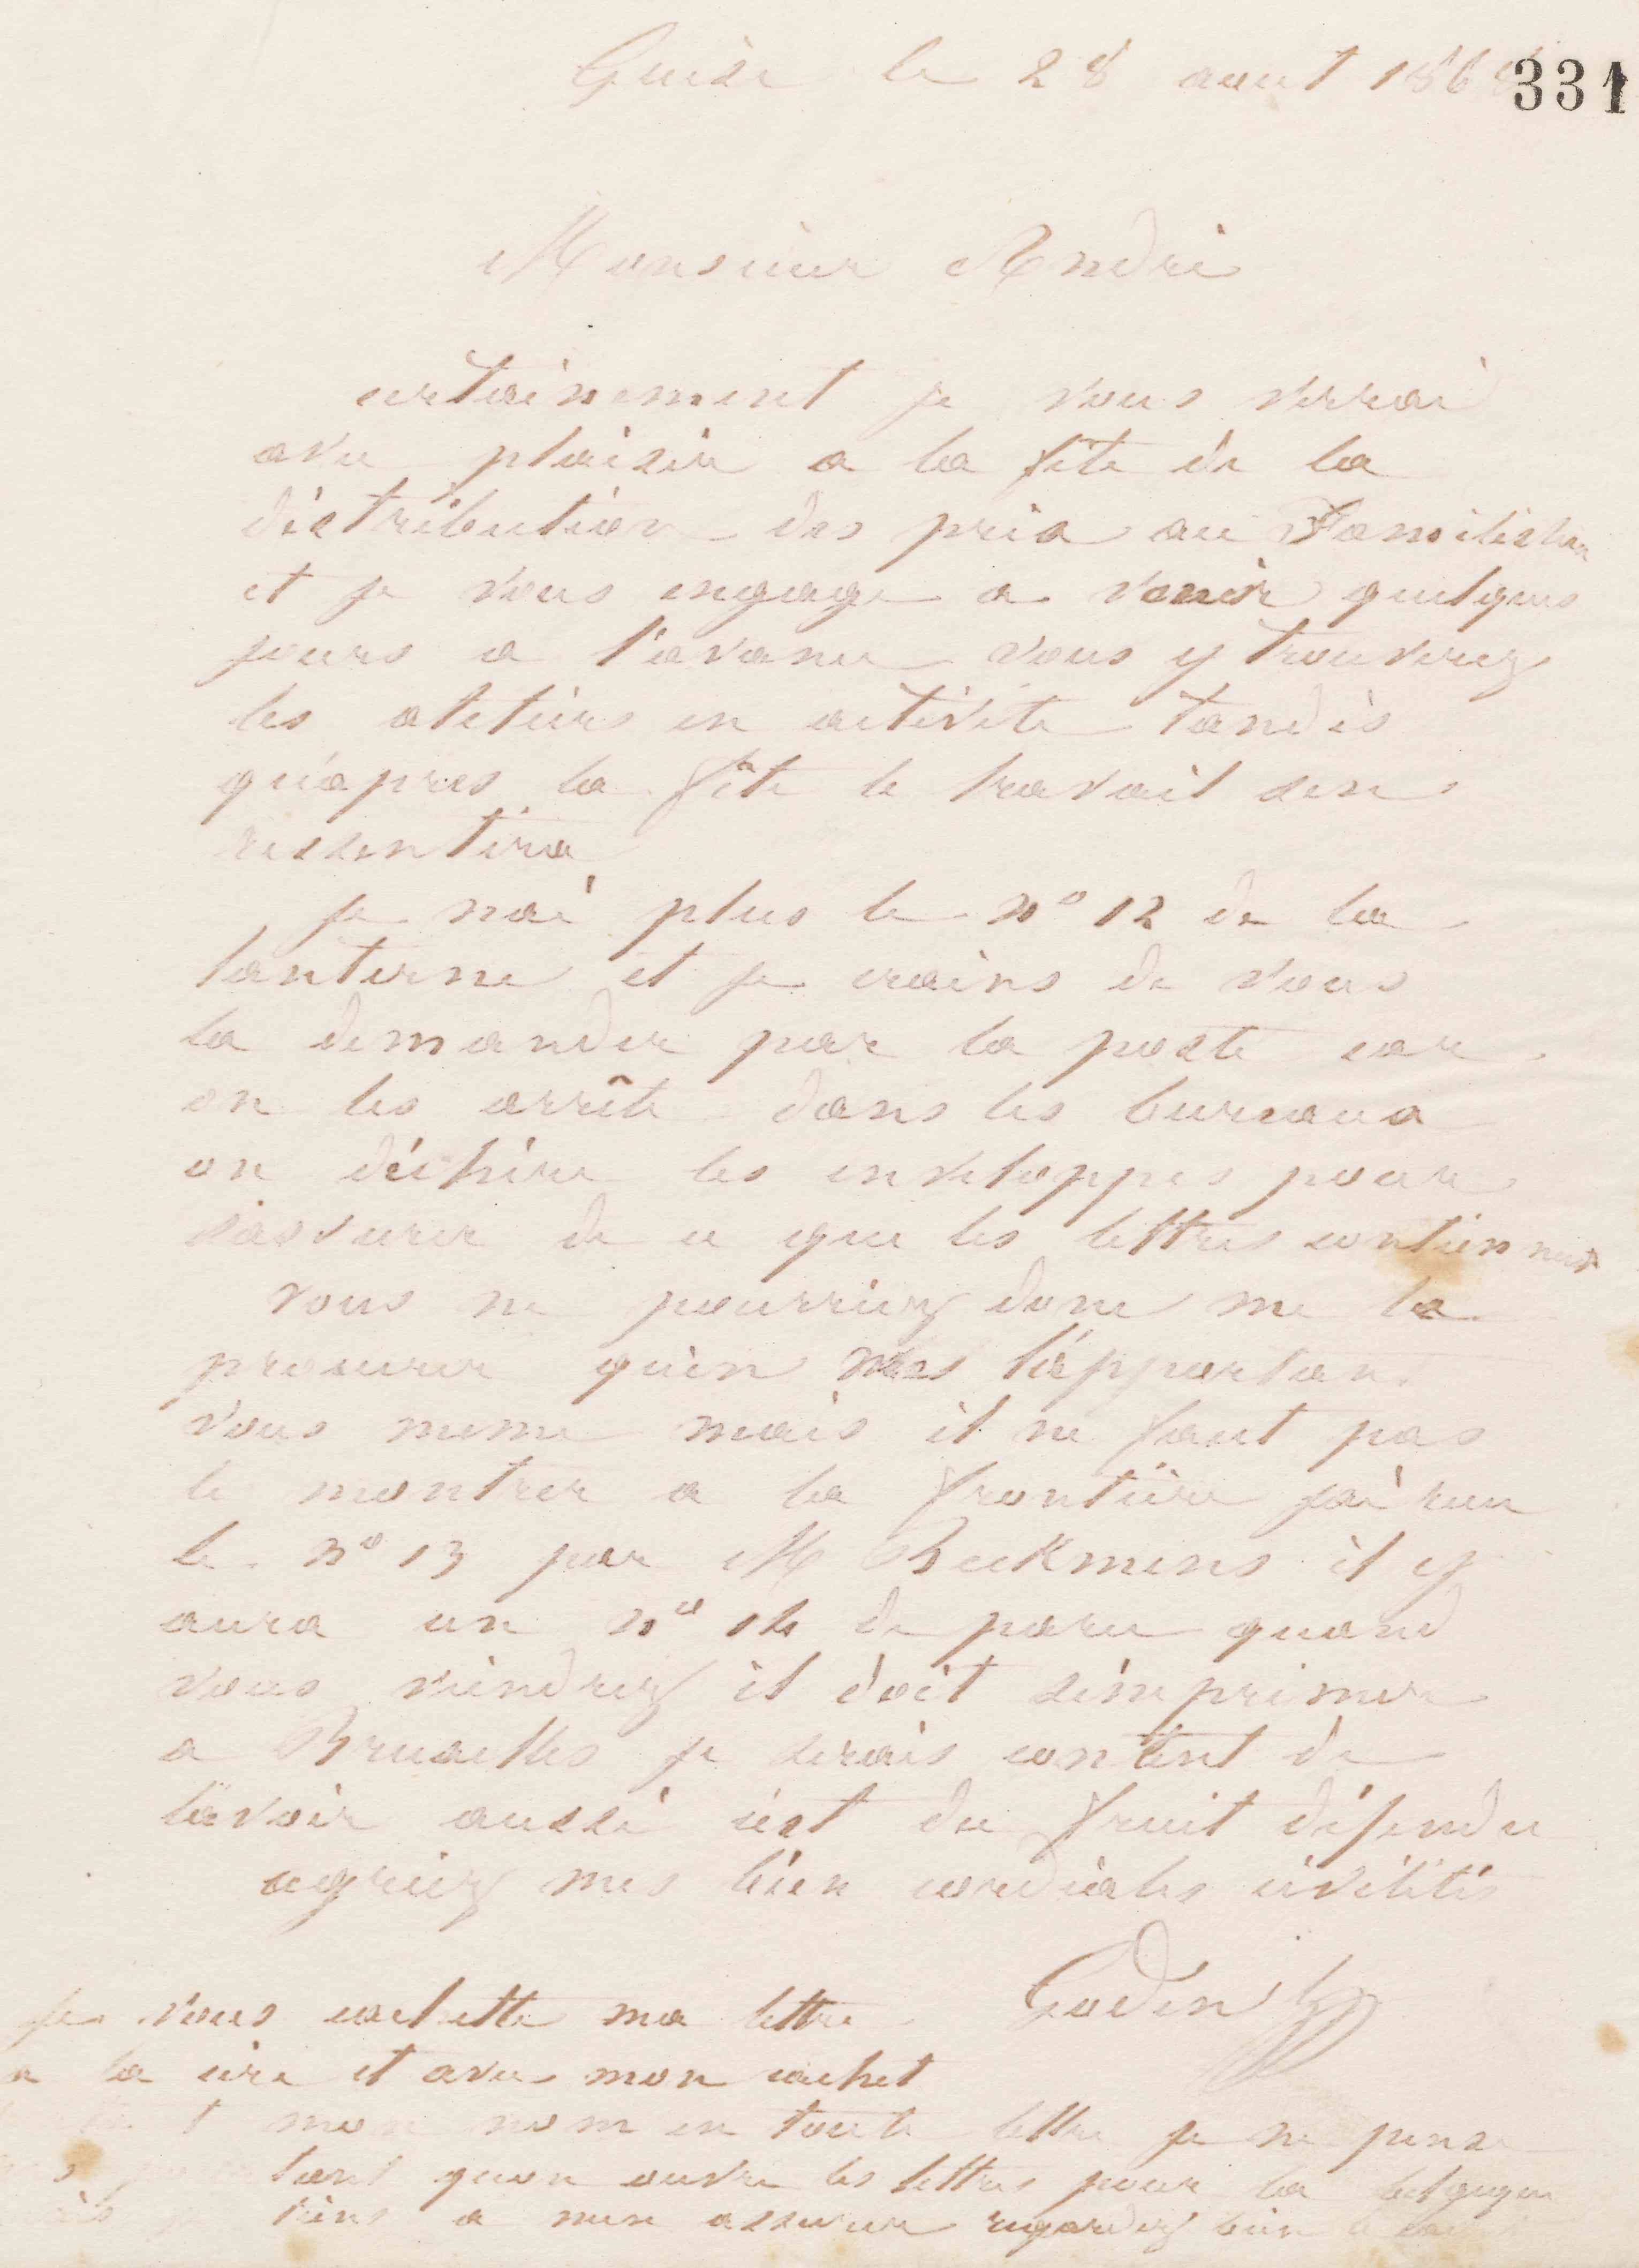 Guise le 28 aout 186
331
Monsieur André
certainement je vous verrai
avec plaisir a la fête de la
distribution des prix au Familistere
et je vous engage a venir quelques
jours a l'avance vous y trouverez
les ateliers en activité tandis
qu'apres la fête le travail sen
ressentira
je nai plus le nº 12 de la
lanterne et je crains de vous
la demander par la poste car
on les arrête dans les bureaux
on déchire les enveloppes pour
s'assurer de ce que les lettres contiennent
vous ne pourriez donc me la
procurer qu'en l'apportant
vous meme mais il ne faut pas
le montrer a la frontière j'ai reçu
le nº 13 par M Beckmens il y
aura un nº 14 de paru quand
vous viendrez il doit s'imprimer
a Bruxelles je serais content de
l'avoir aussi c'est du fruit défendu
agréez mes bien cordiales civilités
Godin
Je vous cachette ma lettre
a la cire et avec mon cachet
mon nom en toute lettre je ne pense
tant quon ouvre les lettres pour la belgique
tiens a men assurer regardez bien le